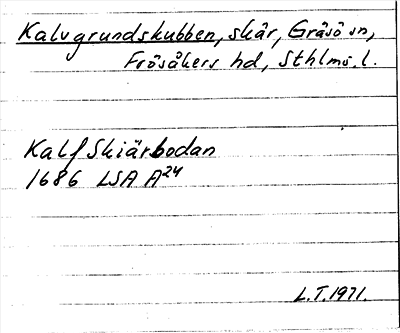 Kalvgrundskubben, skär, Gräsö sn,
Frösåkers hd, Sthlms. l.
Kalf Skiärbodan
1686 LSA A24
L.T. 1971.